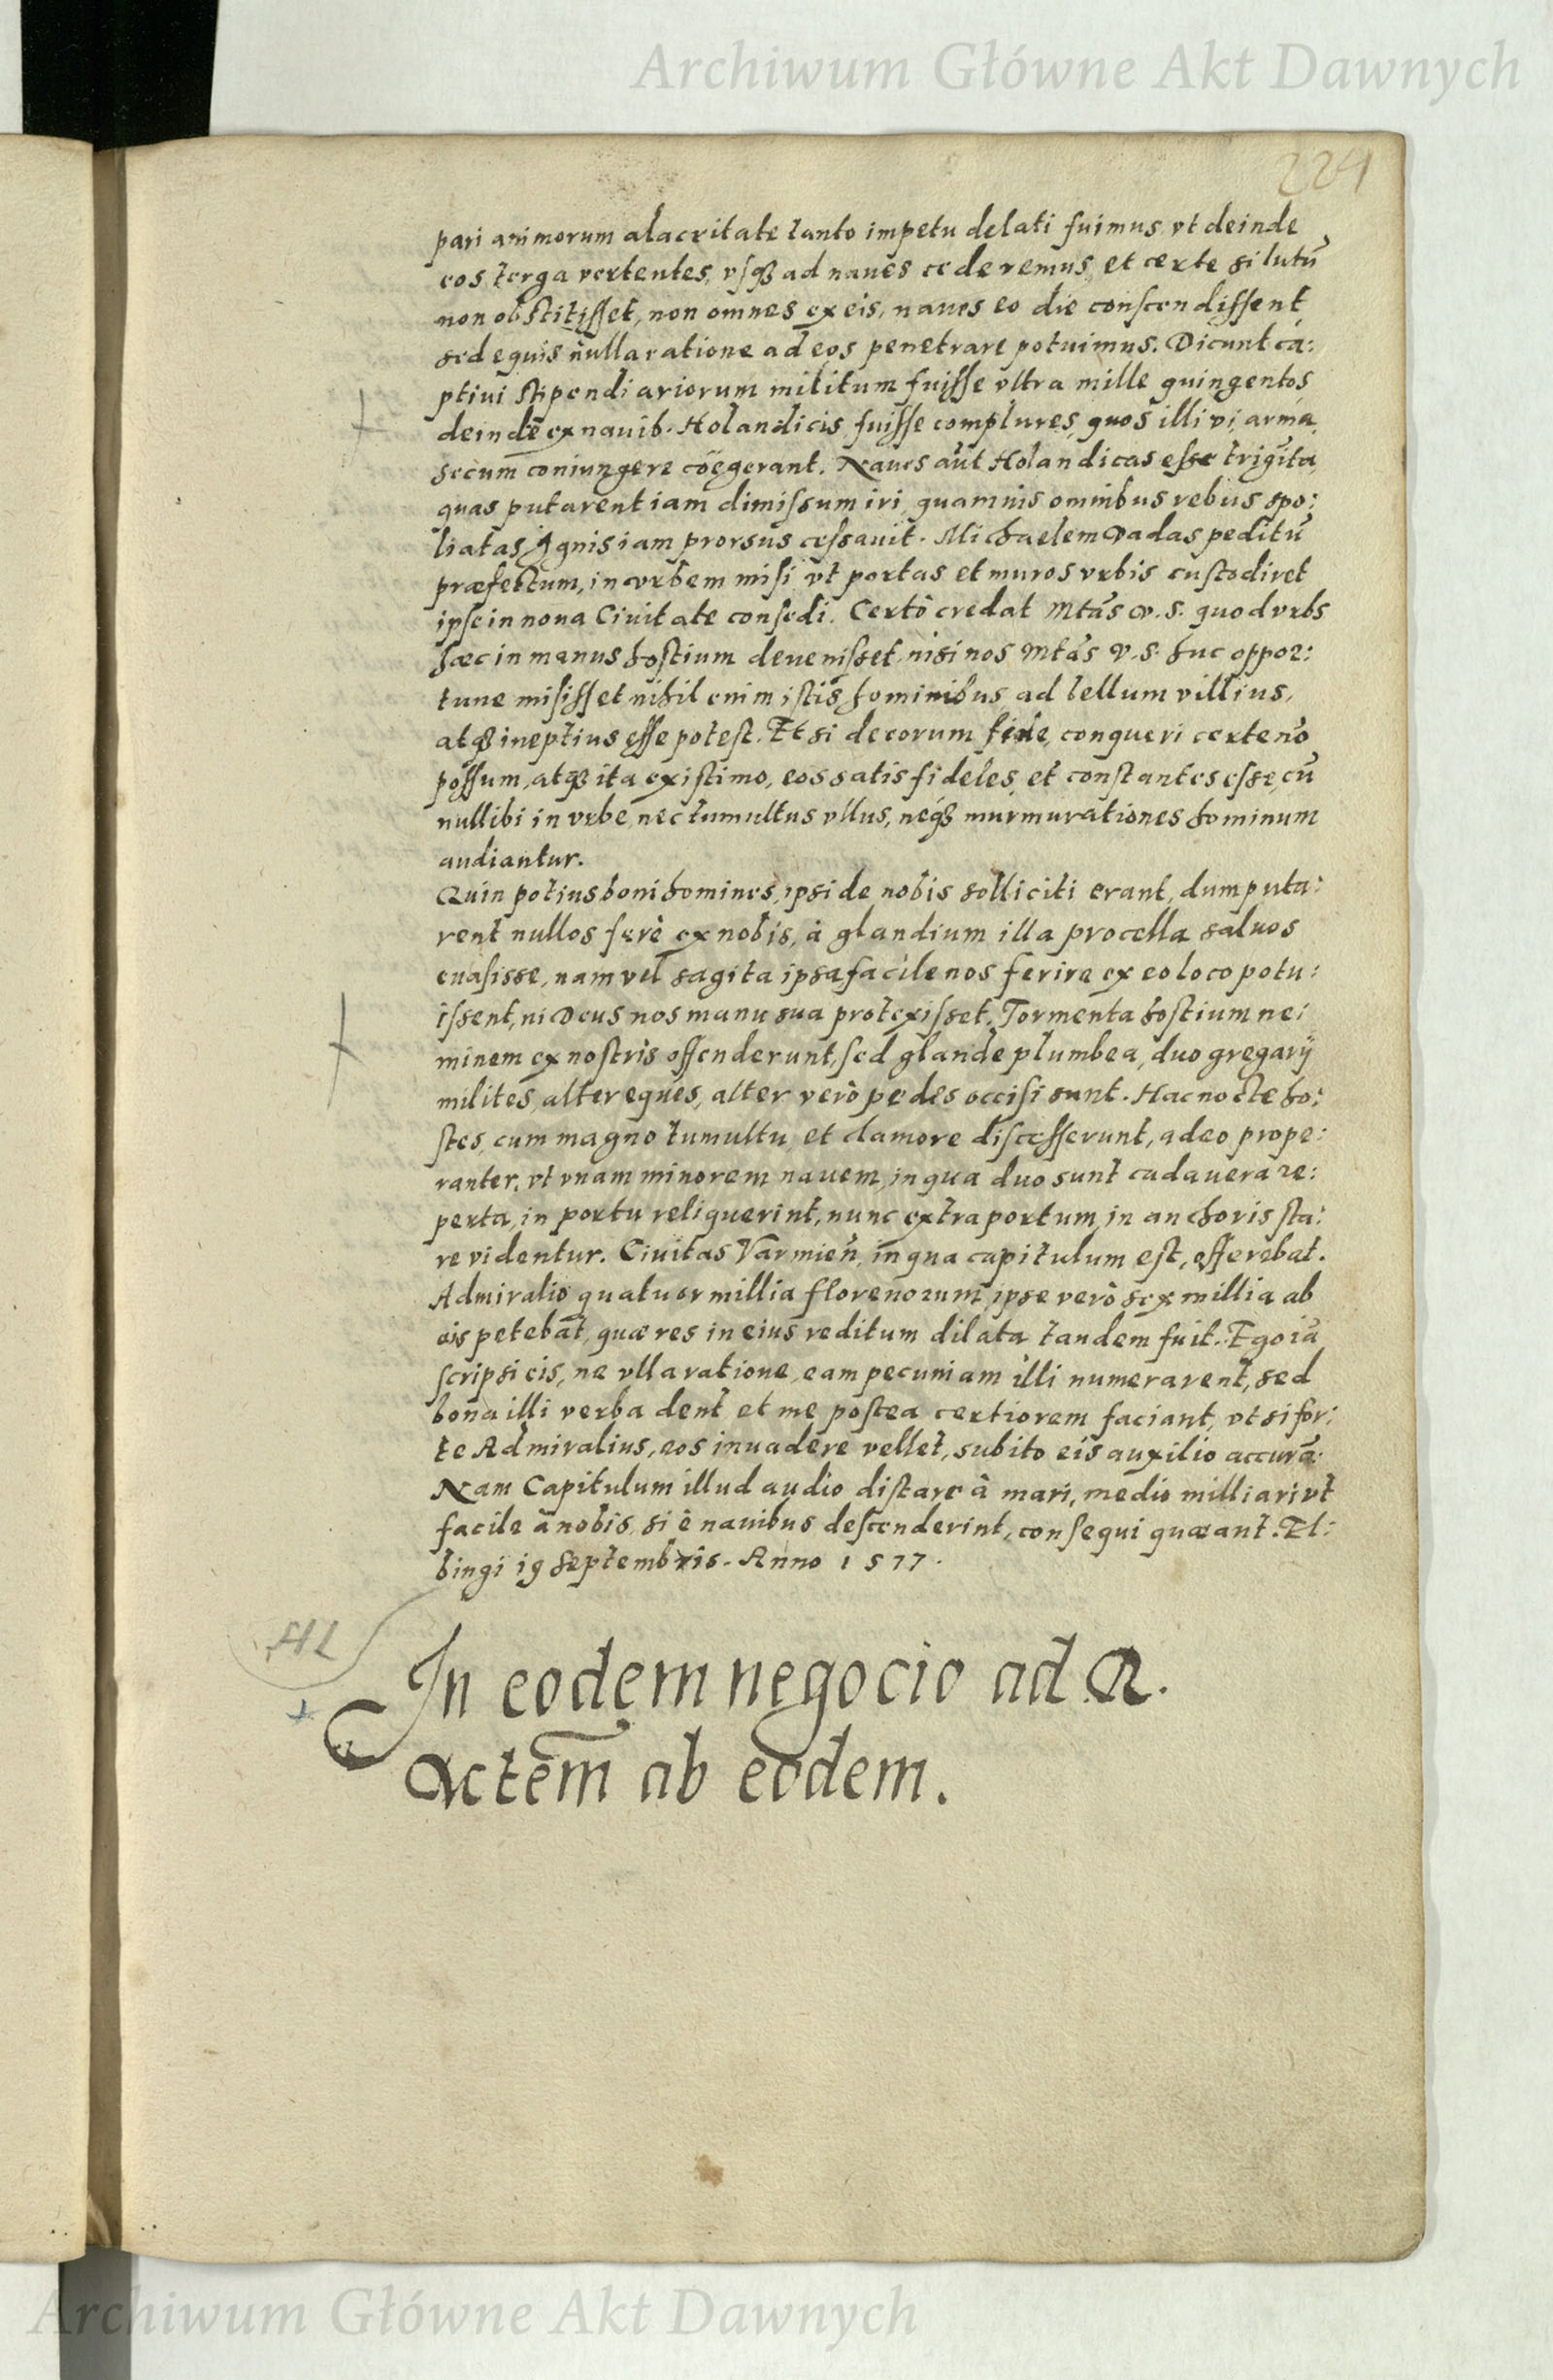 Archiwum Główne Akt Dawnych
224
pari animorum alacritate tanto impetu delati fuimus, vt deinde
eos terga vertentes, vsq́ȝ ad naues cederemus, et certe si lutū
non obstitisset, non omnes ex eis, naues eo die conscendissent,
sed equis nulla ratione ad eos penetrare potuimus. Dicunt ca:
ptiui stipendiariorum militum fuisse vltra mille quingentos,
deinde ex nauib. Holandicis fuisse complures, quos illi vi, arma
secum coniungere coëgerant. Naues aūt Holandicas esse trigīta
quas putarent iam dimissum iri, quamuis omnibus rebus spo:
liatas, Ignis iam prorsus cessauit. Michaelem Vadas peditū
præfectum, in vrbem misi vt portas et muros vrbis custodiret
ipse in noua Ciuitate consedi. Certò credat Mtās V. S. quod vrbs
hæc in manus hostium deuenisset, nisi nos Mtās V. S. huc oppor:
tune misisset nihil enim istis hominibus ad bellum villius,
atqȝ ineptius esse potest. Et si de eorum fide, conqueri certe nō
possum, atqȝ ita existimo, eos satis fideles, et constantes esse, cū
nullibi in vrbe, nec tumultus vllus, neq́ȝ murmurationes hominum
audiantur.
Quin potius boni homines, ipsi de nobis solliciti erant, dum puta:
rent nullos ferè ex nobis, à glandium illa procella saluos
euasisse, nam vel sagita ipsa facile nos ferire ex eo loco potu:
issent, ni Deus nos manu sua protexisset. Tormenta hostium ne:
minem ex nostris offenderunt, sed glande plumbea, duo gregarij
milites, alter eques, alter verò pedes occisi sunt. Hac nocte ho:
stes, cum magno tumultu, et clamore discesserunt, adeo prope:
ranter, vt vnam minorem nauem, in qua duo sunt cadauera re:
perta, in portu reliquerint, nunc extra portum in anchoris sta:
re videntur. Ciuitas Varmieñ, in qua capitulum est, offerebat.
Admiralio quatuor millia florenorum, ipse verò sex millia ab
eis petebat, quæ res in eius reditum dilata tandem fuit. Ego iā
scripsi eis, ne vlla ratione, eam pecuniam illi numerarent, sed
bona illi verba dent et me postea certiorem faciant, vt si for:
te Admiralius, eos inuadere vellet, subito eis auxilio accurā.
Nam Capitulum illud audio distare à mari, medio milliari vt
facile à nobis, si è nauibus descenderint, consequi quæant. El:
bingi 19 Septembris. Anno 1577.
In eodem negocio ad R.
Mtem ab eodem.
Archiwum Główne Akt Dawnych